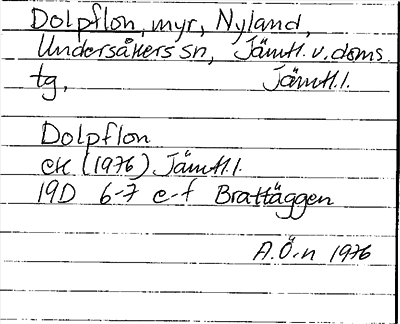 Dolpflon, myr, Nyland,
Undersåkers sn, Jämtl. v. doms.
tg, Jämtl.l.
Dolpflon
ek (1976) Jämtl.l.
19D 6-7 e-f Brattäggen
A.Ö-n 1976